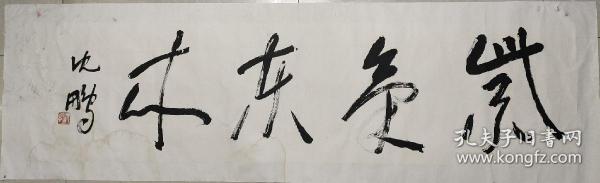 紫氣东来
沈鹏
孔夫子旧书网
www.kongfz.com